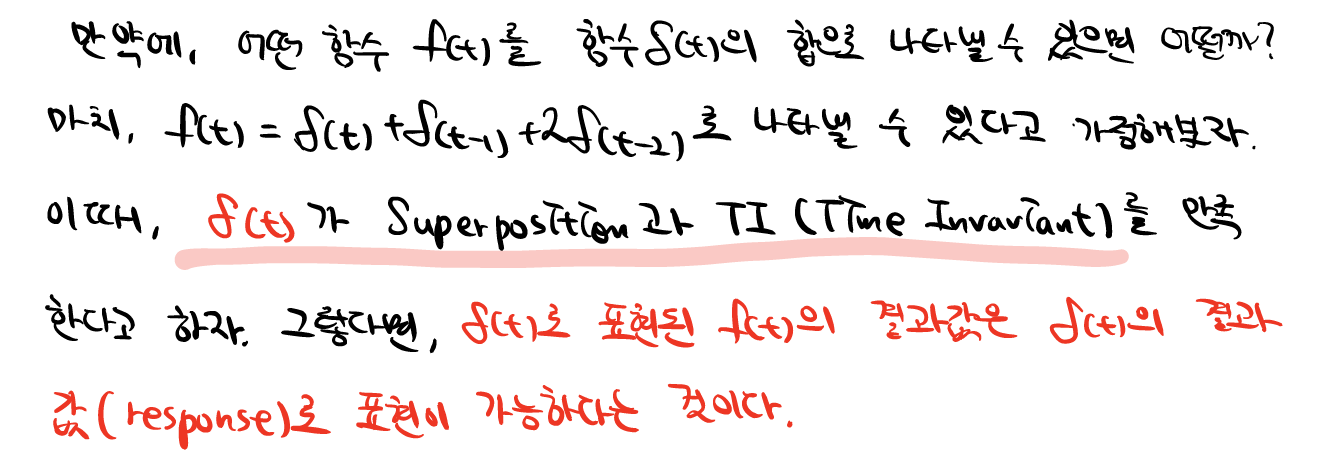 만약에, 어떤 함수 f(t)를 함수 δ(t)의 합으로 나타낼 수 있으면 어떨까?
마치, f(t) = δ(t) + δ(t-1) + 2δ(t-2)로 나타낼 수 있다고 가정해보자.
이때, δ(t)가 Superposition과 TI (Time Invariant)를 만족
한다고 하자. 그렇다면, δ(t)로 표현된 f(t)의 결과값은 δ(t)의 결과
값(response)로 표현이 가능하다는 것이다.